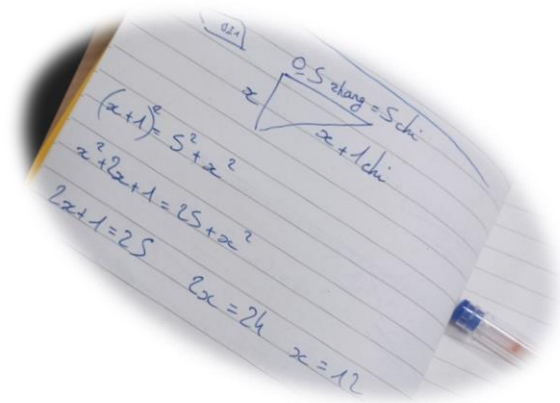 0,5 zhang = 5chi
x
x+1chi
(x+1)² = 5² + x²
x² + 2x + 1 = 25 + x²
2x + 1 = 25
2x = 24
x = 12